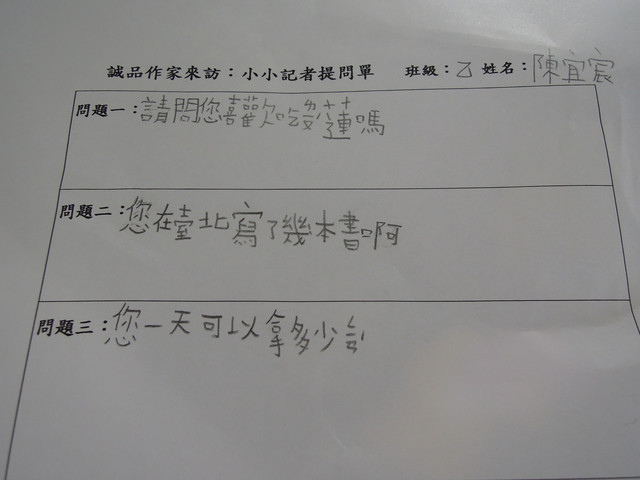 誠品作家來訪：小小記者提問單 班級：乙 姓名：陳宜宸
問題一：請問您喜歡吃蓮嗎
問題二：您在臺北寫了幾本書啊
問題三：您一天可以拿多少